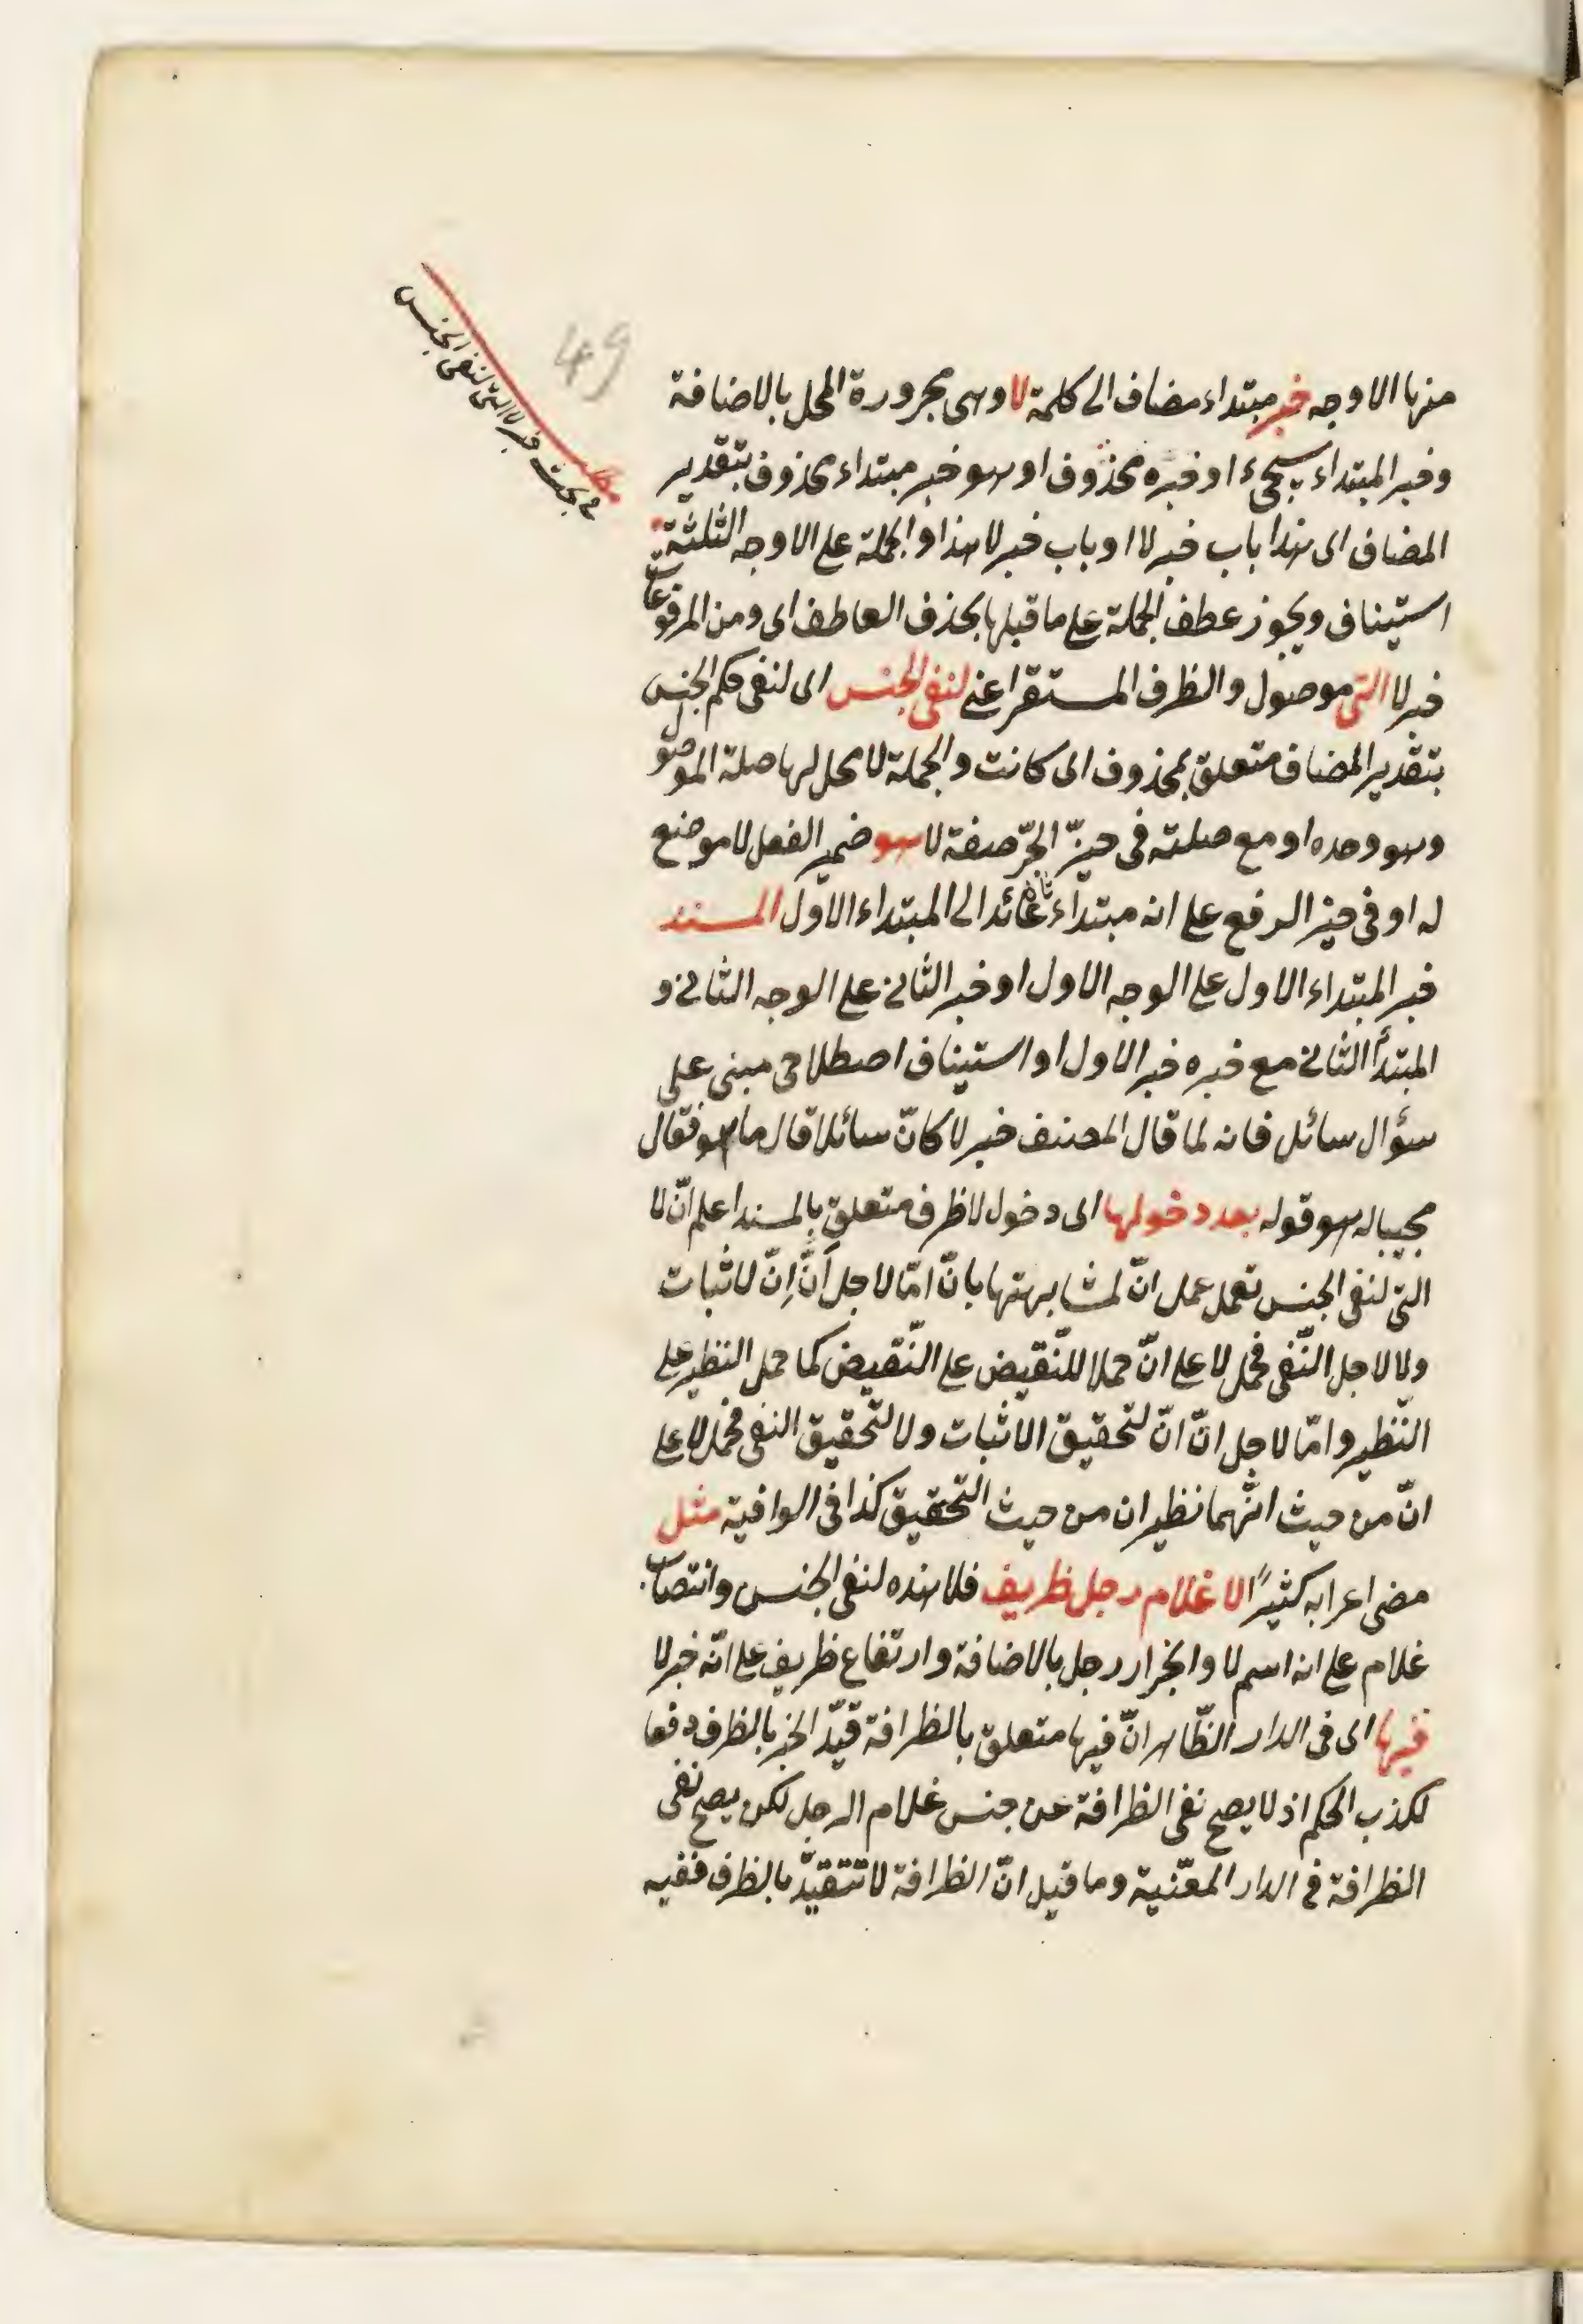 مطلب
في بحث خبر لا التى لنفى الجنس
49
منها الاوجه خبر مبتداء مضاف الى كلمة لا وهى مجرورة المحل بالاضافة
وخبر المبتداء سيجئ او خبره محذوف او هو خبر مبتداء محذوف بتقدير
المضاف اى هذا باب خبر لا او باب خبر لا هذا والجملة على الاوجه الثلثة
استيناف ويجوز عطف الجملة على ما قبلها بحذف العاطف اى ومن المرفوعات
خبر لا التى موصول والظرف المستقر اعنى لنفى الجنس اى لنفى حكم الجنس
بتقدير المضاف متعلق بمحذوف اى كانت والجملة لا محل لها صلة الموصول
وهو وحده او مع صلته فى حيّز الجرّ صفة لا هو ضمير الفصل لا موضع
له او فى حيز الرفع على انه مبتداء ثان عائد الى المبتداء الاول المسند
خبر المبتداء الاول على الوجه الاول او خبر الثانى على الوجه الثانى و
المبتدأ الثانى مع خبره خبر الاول او استيناف اصطلاحى مبنى على
سؤال سائل فانه لما قال المصنف خبر لا كانّ سائلا قال ما هو فقال
مجيبا له هو قوله بعد دخولها اى دخول لا ظرف متعلق بالمسند اعلم انّ لا
التى لنفى الجنس تعمل عمل انّ لمشابهتها بانّ امّا لاجل أنّ اِنّ لاثبات
ولا لاجل النّفى فحمل لا على انّ حملا للنّقيض على النّقيض كما حمل النظير على
النّظير وامّا لاجل انّ انّ لتحقيق الاثبات ولا لتحقيق النفى فحمل لا على
انّ من حيث انّهما نظيران من حيث التحقيق كذا فى الوافية مثل
مضى اعرابه كثيرًا لا غلام رجل ظريف فلا هذه لنفى الجنس وانتصاب
غلام على انه اسم لا وانجرار رجل بالاضافة وارتفاع ظريف على انّه خبر لا
فيها اى فى الدار الظّاهر انّ فيها متعلق بالظرافة قيّد الخبر بالظرف دفعا
لكذب الحكم اذ لا يصح نفى الظرافة عن جنس غلام الرجل لكن يصح نفى
الظرافة فى الدار المعيّنة وما قيل انّ الظرافة لا تتقيّد بالظرف ففيه